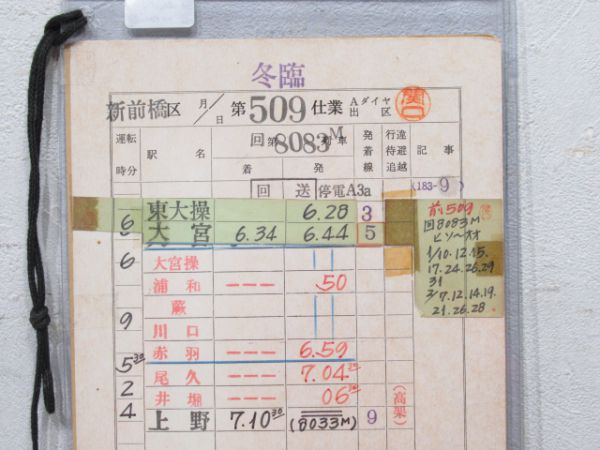 冬臨
新前橋区 月/日 第509仕業 Aダイヤ出区 関口
運転時分 駅名 回第8083M列車 着 発 発着線 行違待避追越 記事
回送 停電A3a (183-9)
東大操 6.28 3
6 大宮 6.34 6.44 5
6 大宮操 ||
浦和 --- 50
9 蕨 ||
川口
5 30 赤羽 --- 6.59
2 尾久 --- 7.04
4 井堀 --- 06 (高架)
上野 7.10 30 (8033M) 9
前509
回8083M
ヒソ～オオ
1/10.12.15.
17.24.26.29
31
2/7.12.14.19.
21.26.28.